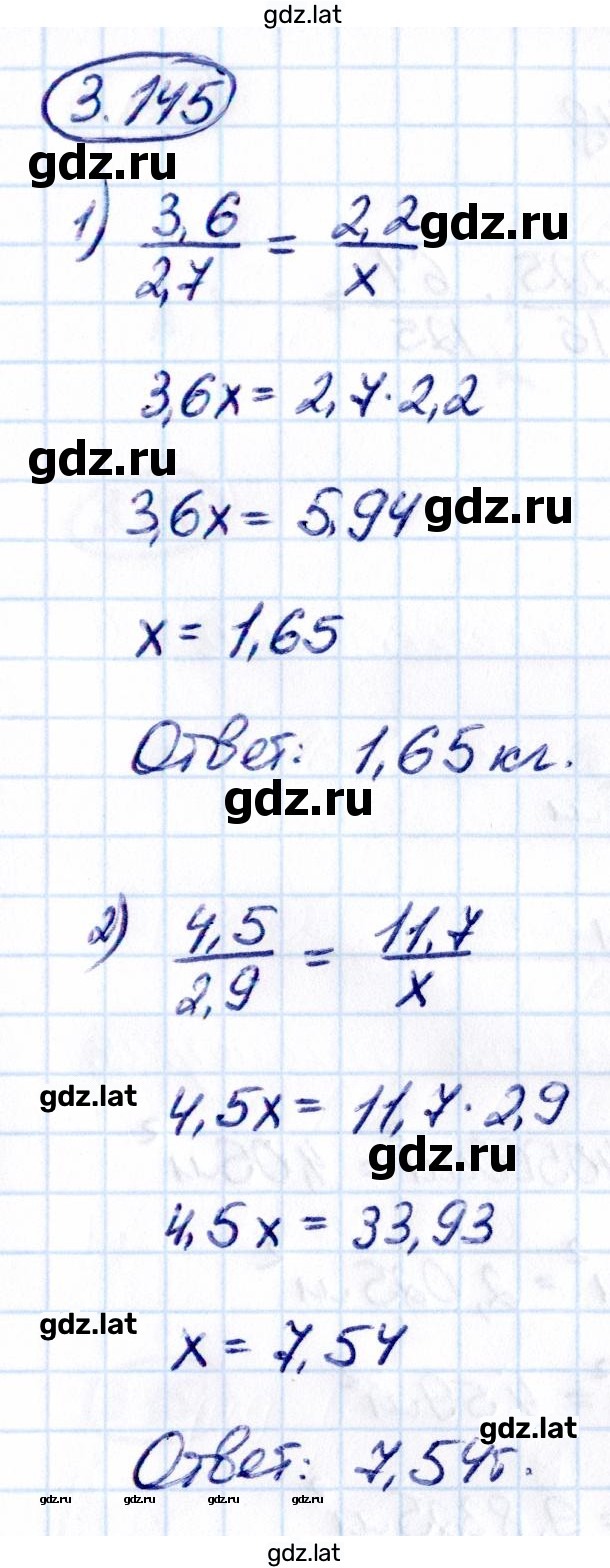 gdz.lat
3.145
gdz.ru
1) 3,6/2,7 = 2,2/x
gdz.ru
3,6x = 2,7·2,2
gdz.ru
3,6x = 5,94
gdz.ru
x = 1,65
Ответ: 1,65 кг.
gdz.ru
2) 4,5/2,9 = 11,7/x
gdz.lat
4,5x = 11,7·2,9
gdz.ru
4,5x = 33,93
gdz.lat
x = 7,54
gdz.lat
Ответ: 7,54т.
gdz.ru gdz.ru gdz.ru gdz.ru
gdz.lat